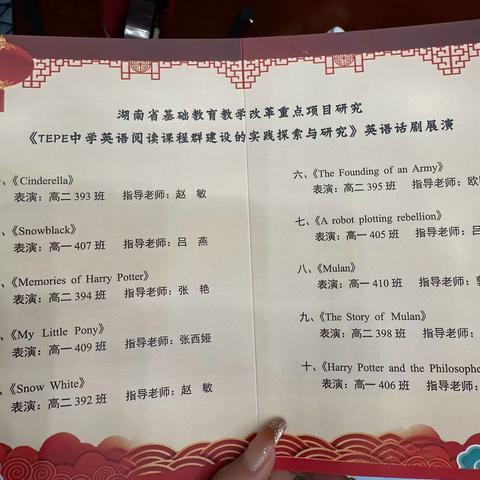 湖南省基础教育教学改革重点项目研究
《TEPE中学英语阅读课程群建设的实践探索与研究》英语话剧展演
、《Cinderella》
表演：高二 393 班 指导老师：赵 敏
、《Snowblack》
表演：高一 407 班 指导老师：吕 燕
、《Memories of Harry Potter》
表演：高二 394 班 指导老师：张 艳
、《My Little Pony》
表演：高一 409 班 指导老师：张西娅
、《Snow White》
表演：高二 392 班 指导老师：赵 敏
六、《The Founding of an Army》
表演：高二 395 班 指导老师：欧
七、《A robot plotting rebellion》
表演：高一 405 班 指导老师：吕
八、《Mulan》
表演：高一 410 班 指导老师：
九、《The Story of Mulan》
表演：高二 398 班 指导老师：
十、《Harry Potter and the Philosophe
表演：高一 406 班 指导老师：